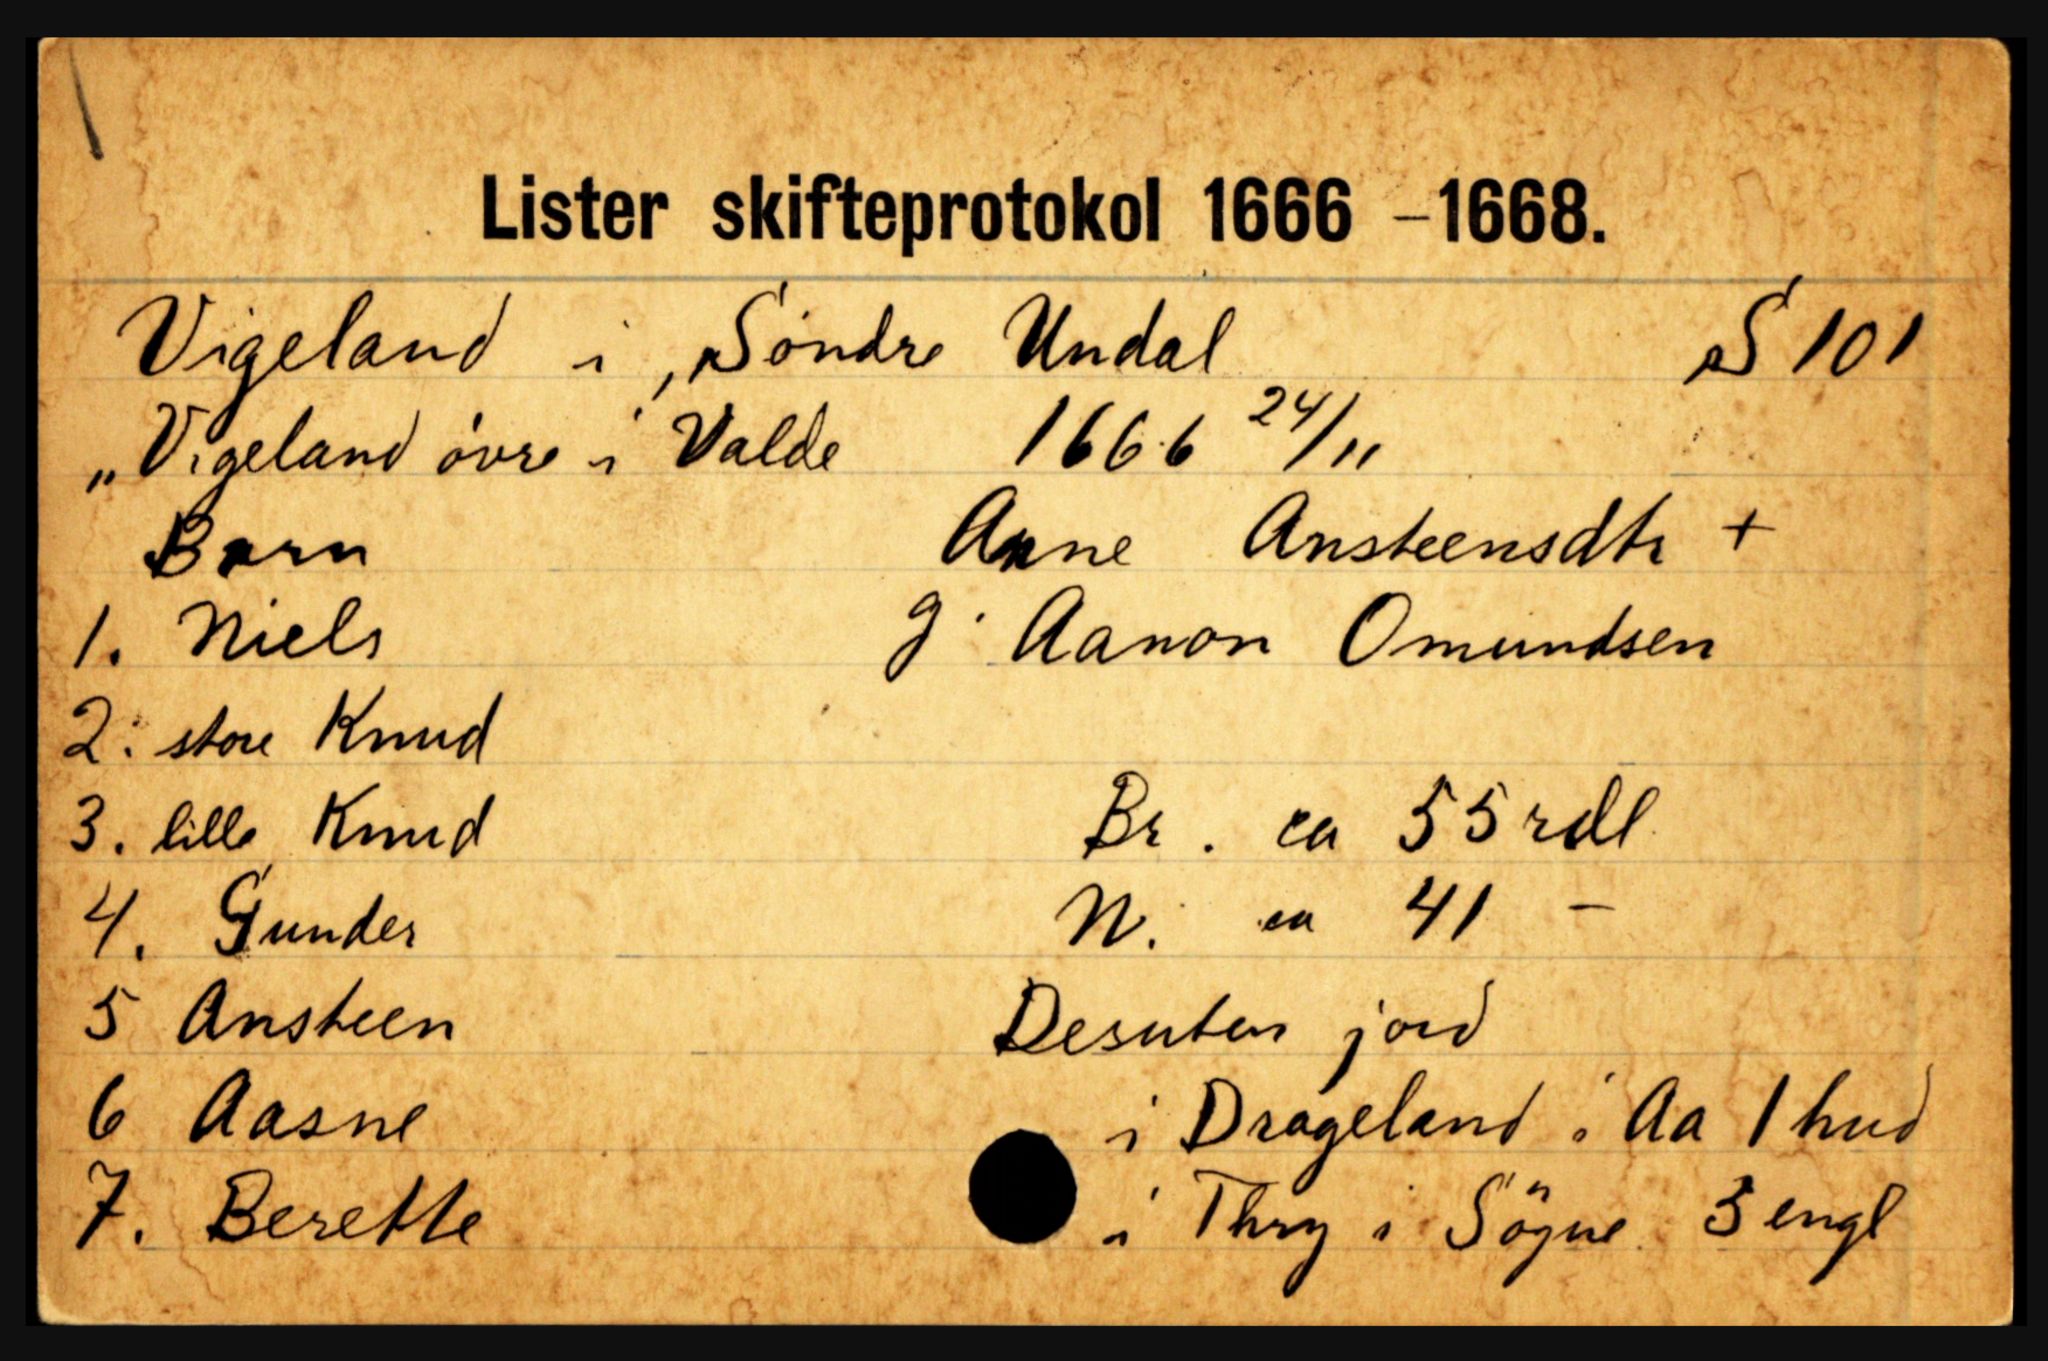 Lister skifteprotokol 1666 – 1668.
Vigeland i Söndre Undal S 101
„Vigeland övre i Valde 1666 24/11
Barn Anne Ansteensdtr +
1. Niels g. Aanon Omundsen
2. store Knud
3. lille Knud Br. ca 55 rdl
4. Gunder N. ca 41 –
5 Ansteen Desuten jord
6 Aasne i Drageland i Aa 1 hud
7. Berette i Thry i Sögne 3 engl